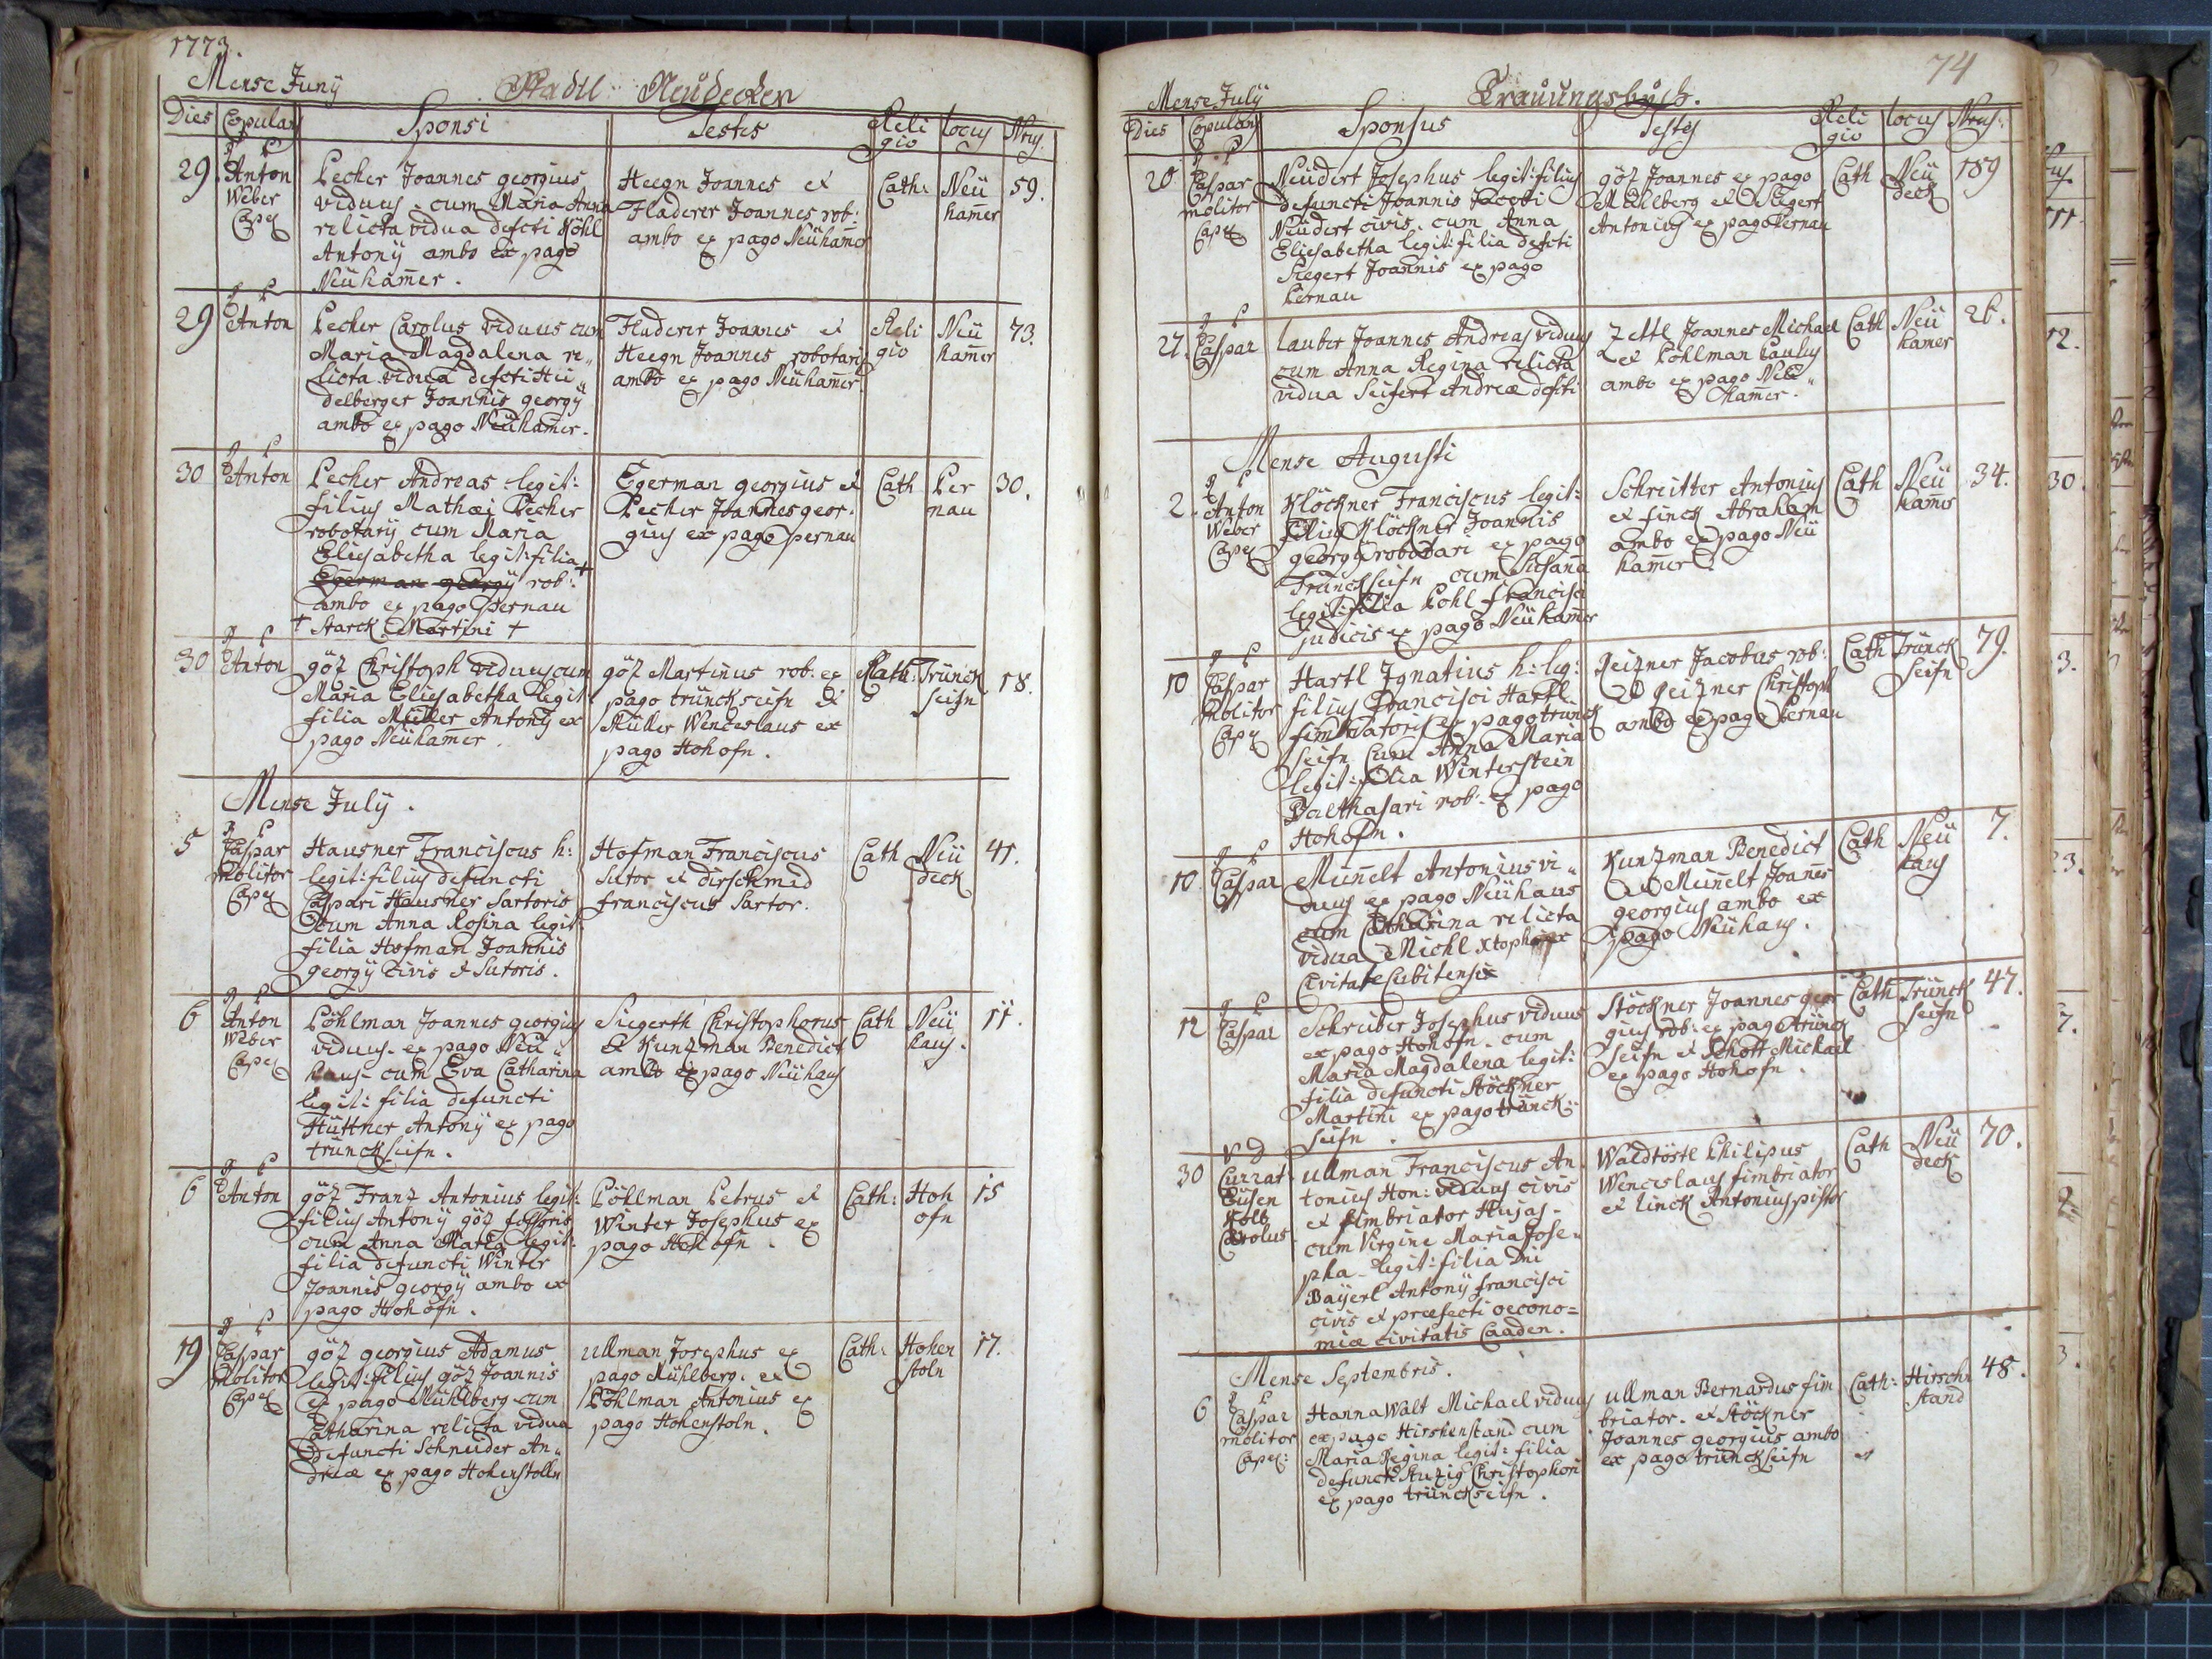 1773.
Mense Junÿ
Stadtl Neüdecker
Dies Copulans Sponsi Testes Religio locus Nrus.
29. P P Anton Weber Capel
Pecher Joannes georgius
viduus cum Maria Anna
relicta vidua defcti Köhl
Antonÿ ambo ex pago
Neühamer.
Heegn Joannes et
Fladerer Joannes rob:
ambo ex pago Neühamer
Cath: Neühamer 59.
29 P P Anton
Pecher Carolus viduus cum
Maria Magdalena re„
licta vidua defcti Hei„
delberger Joannis georgÿ
ambo ex pago Neühamer.
Fladerer Joannes et
Heegn Joannes robotarij
ambo ex pago Neühamer
Religio Neühamer 73.
30 P P Anton
Pecher Andreas legit:
filius Mathæi Pecher
robotarÿ cum Maria
Eliesabetha legit: filia +
Egerman georgÿ rob:
ambo ex pago Pernau
+ Starck Martini +
Egerman georgius et
Pecher Joannes geor„
gius ex pago pernau
Cath Pernau 30.
30 P P Anton
göz Christoph viduus cum
Maria Eliesabetha legit
filia Müller Antonÿ ex
pago Neühamer.
göz Martinus rob: ex
pago trünckseifn et
Müller Wenceslaus ex
pago Hohofn.
Cath: Trünckseifn 18.
Mense Julÿ.
5 P P Caspar Molitor Capel
Hausner Franciscus h:
legit: filius defuncti
Caspari Hausner Sartoris
cum Anna Rosina legit:
filia Hofman Joannis
georgÿ civis et Sutoris.
Hofman Franciscus
Sutor et dirschmid
franciscus Sartor.
Cath Neüdeck 41.
6 P P Anton Weber Capel
Pöhlman Joannes georgius
viduus ex pago Neü„
haus cum Eva Catharina
legit: filia defuncti
Hüttner Antonÿ ex pago
trünckseifn.
Siegerth Christophorus
et Kunzman Benedict
ambo ex pago Neühaus
Cath Neühaus. 11.
6 P P Anton
göz Franz Antonius legit:
filius Antonÿ göz fossoris
cum Anna Maria legit:
filia defuncti Winter
Joannis georgÿ ambo ex
pago Hohofn.
Pöhlman Petrus et
Winter Josephus ex
pago Hohofn.
Cath: Hohofn 15
19 P P Caspar Molitor Capel
göz georgius Adamus
legit: filius göz Joannis
ex pago Mühlberg cum
Catharina relicta vidua
defuncti Schneider An„
dreæ ex pago Hohenstolln
Ullman Josephus ex
pago Mühlberg. et
Pöhlman Antonius ex
pago Hohenstoln.
Cath: Hohenstoln 17.
74
Mense Julÿ
Trauungsbuch.
Dies Copulans Sponsus Testes Religio locus Nrus:
20 P P Caspar Molitor Capel
Neudert Josephus legit: filius
defuncti Joannis Jacobi
Neudert civis. cum Anna
Eliesabetha legit: filia defcti
Siegert Joannis ex pago
Pernau
göz Joannes ex pago
Mühlberg et Siegert
Antonius ex pago Pernau
Cath Neüdeck 189
27. P P Caspar
Lauber Joannes Andreas viduus
cum Anna Regina relicta
vidua Seifert Andreæ defcti
Zettl Joannes Michael
et Pöhlman Paulus
ambo ex pago Neü„
hamer.
Cath Neühamer 26.
Mense Augusti
2. P P Anton Weber Capel
Klöckner Franciscus legit:
filius Klöckner Joannis
georgÿ robotari ex pago
Trünckseifn cum Susana
legit: filia Pohl francisci
judicis ex pago Neühamer
Schreitter Antonius
et finck Abraham
ambo ex pago Neü
hamer.
Cath Neühamer 34.
10 P P Caspar Molitor Capel
Hartl Ignatius h: leg:
filius Francisci Hartl
fimbriatoris ex pago trünck
seifn cum Anna Maria
legit: filia Winterstein
Balthasari rob: ex pago
Hohofn.
Zeizner Jacobus rob:
et Zeizner Christoph
ambo ex pago Pernau
Cath Trünckseifn 79.
10. P P Caspar
Munelt Antonius vi„
duus ex pago Neühaus
cum Catharina relicta
vidua Michl Xtoph ex
Civitate Cubitensis
Kunzman Benedict
et Munelt Joannes
georgius ambo ex
pago Neühaus.
Cath Neühaus 7.
12 P P Caspar
Schreiber Josephus viduus
ex pago Hohofn. cum
Maria Magdalena legit:
filia defuncti Stöckner
Martini ex pago trünck„
seifn.
Stöckner Joannes geor
gius rob: ex pago trünck
seifn et Schott Michael
ex pago Hohofn.
Cath Trünckseifn 47.
30 V D Kolb Carolus
Ullman Franciscus An„
tonius Hon: viduus civis
et fimbriator Hujas.
cum Virgine Maria Jose„
pha legit: filia Dni
Bayerl Antonÿ francisci
civis et præfecti oecono=
miæ civitatis Caaden.
Waldtöstl Philipus
Wenceslaus fimbriator
et linck Antonius pistor
Cath Neüdeck 70.
Mense Septembris.
6 P P Caspar Molitor Capel:
Hannawalt Michael viduus
ex pago Hirshenstand cum
Maria Regina legit: filia
defuncti Stuzig Christophori
ex pago trünckseifn.
Ullman Bernardus fim
briator. et Stöckner
Joannes georgius ambo
ex pago trünckseifn
Cath: Hirschnstand 48.